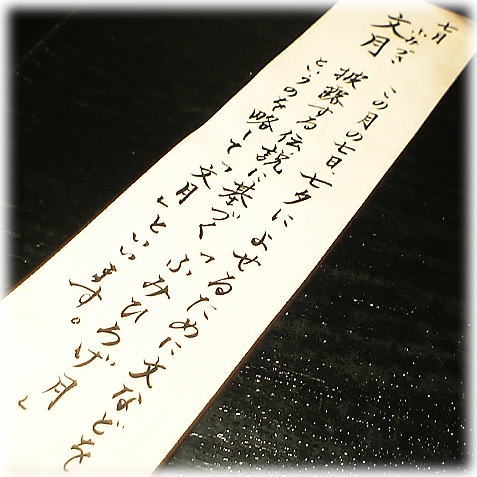 七月
文月
ふみづき
この月の七日、七夕によせるために文などを
披露する伝説に基づく「ふみひろげ月」
というのを略して「文月」といいます。